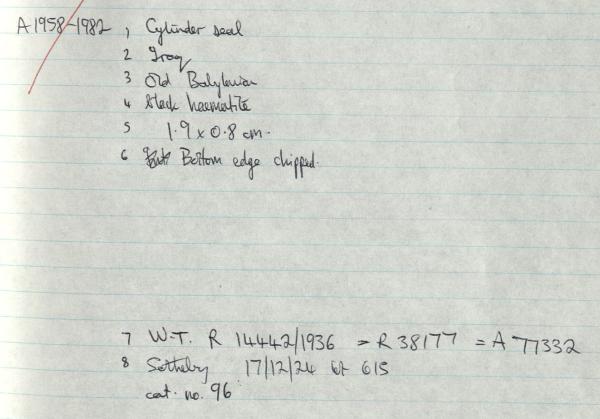 A1958-1982 1 Cylinder seal
2 Iraq
3 Old Babylonian
4 black haematite
5 1.9 x 0.8 cm.
6 Bottom edge chipped.
7 W.T. R 14442/1936 = R 38177 = A 77332
8 Sotheby 17/12/24 lot 615
cat. no. 96